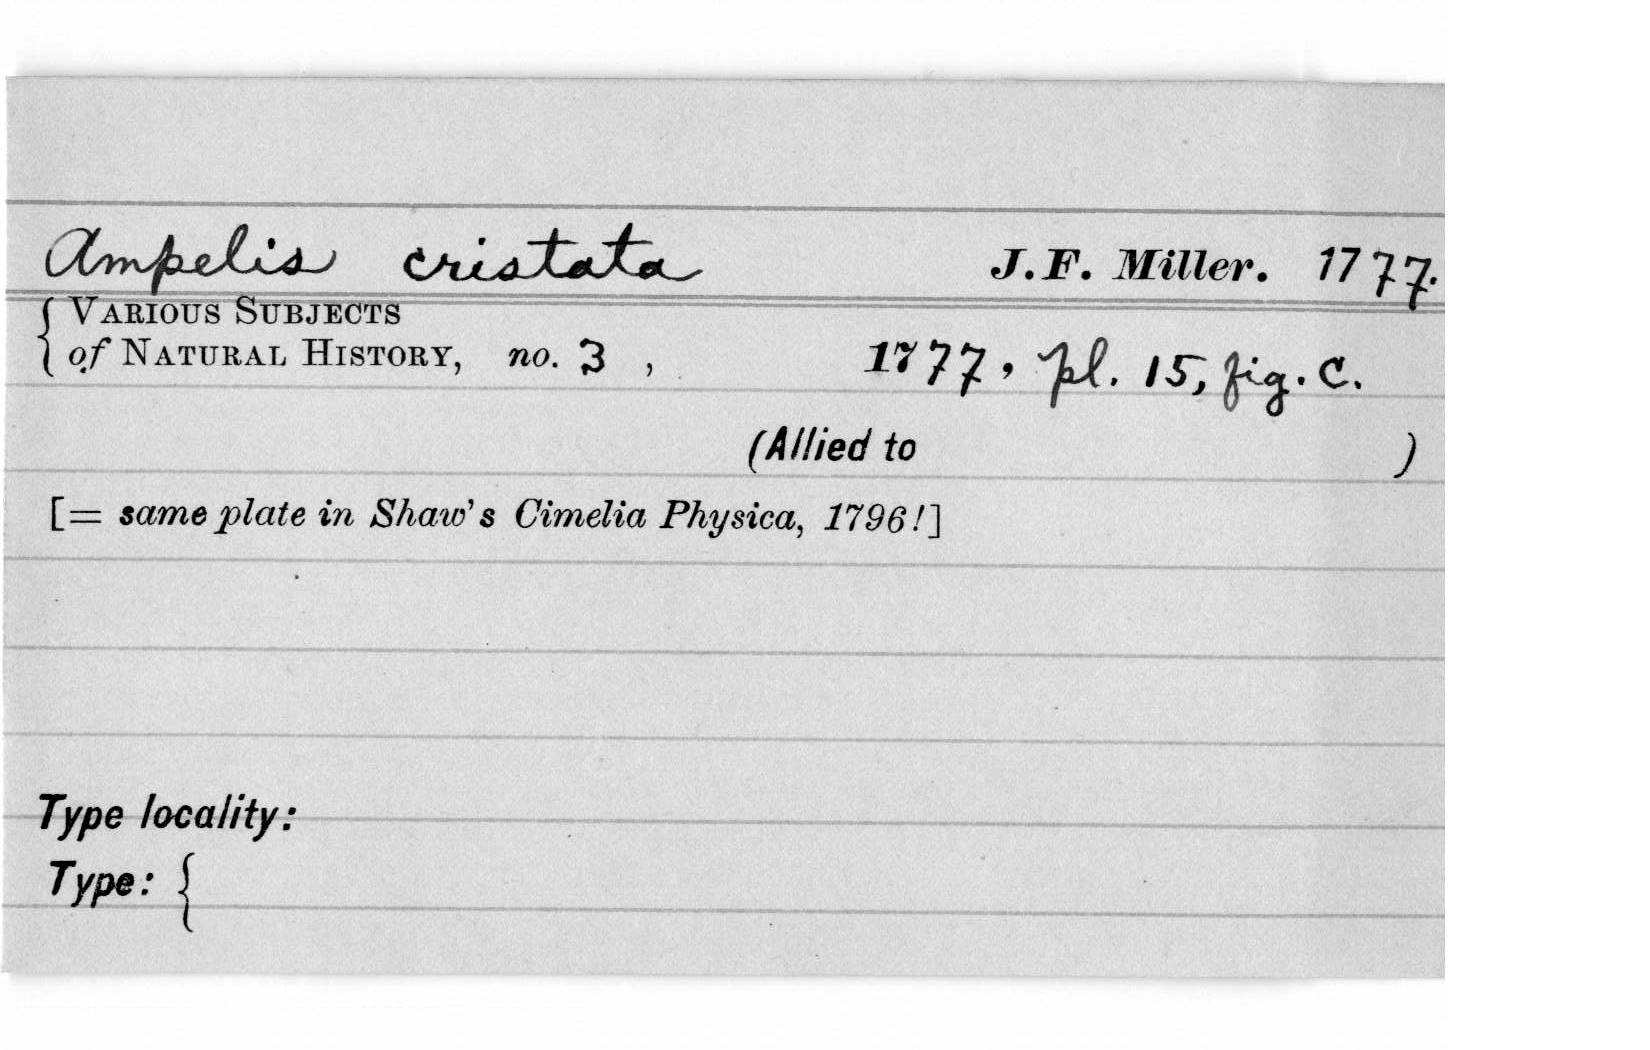 Ampelis cristata J.F. Miller. 1777.
{ VARIOUS SUBJECTS
of NATURAL HISTORY, no. 3 , 1777, pl. 15, fig. C.
(Allied to )
[= same plate in Shaw's Cimelia Physica, 1796!]
Type locality:
Type: {